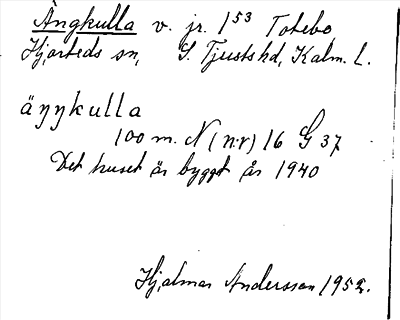 Ängkulla v. jr. 1⁵³ Totebo
Hjorteds sn, S. Tjusts hd, Kalm. L.
äŋŋkulla
100 m. N (n.v) 16 G 37
Det huset är byggt år 1940
Hjalmar Andersson 1952.